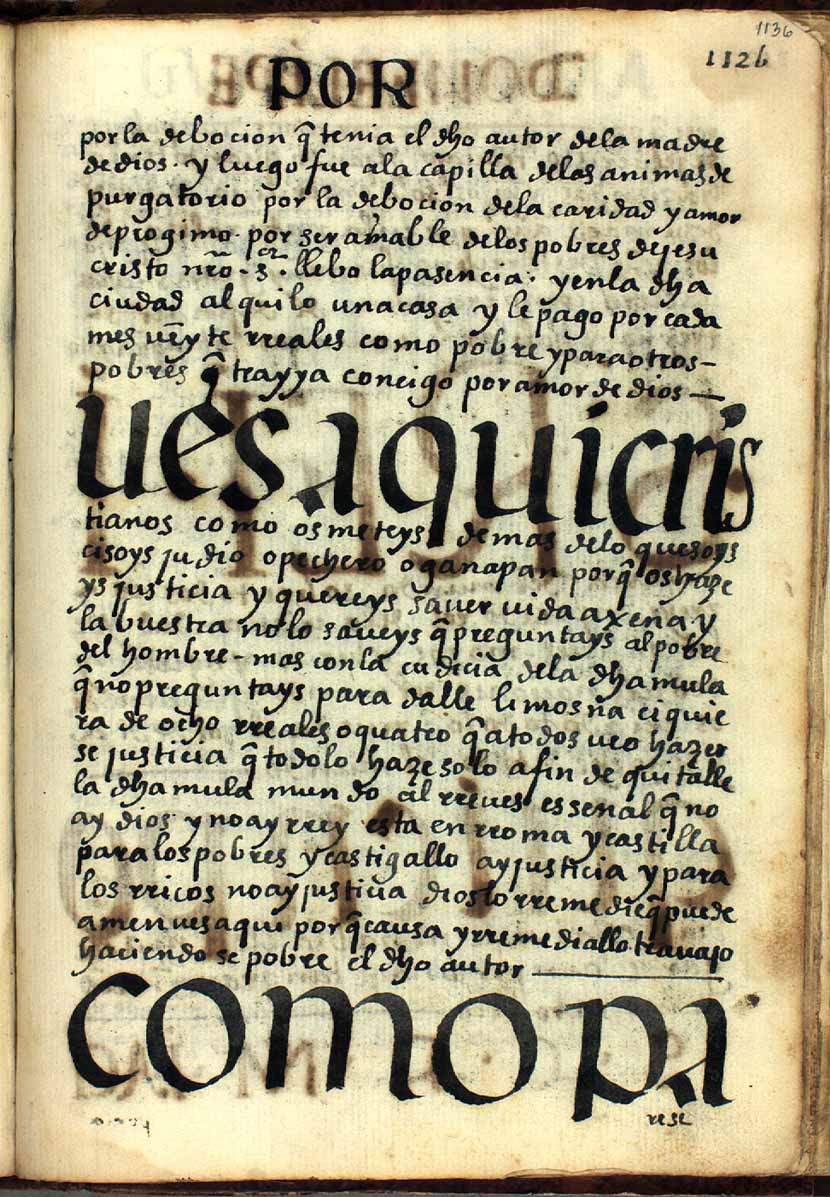 1136
1126
POR
por la debocion q̃ tenia el dho autor de la madre
de dios · y luego fue a la capilla de las animas de
purgatorio por la debocion de la caridad y amor
de progimo · por ser amable de los pobres de jesu
cristo nr̃o · sr · llebo la pasencia · y en la dha
ciudad alquilo una casa y le pago por cada
mes ueynte rreales como pobre y para otros –
pobres q̃ trayya concigo por amor de dios —
ues aqui cris
tianos como os meteys demas de lo que soys
ci soys judio o pechero o ganapan por q̃ os haze
ys justicia y quereys saver uida axena y
la buestra no lo saveys q̃ preguntays al pobre
del hombre – mas con la cudicia de la dha mula
q̃ no preguntays para dalle limosna ci quie
ra de ocho rreales o quatro q̃ a todos ueo hazer
se justicia q̃ todo lo haze solo a fin de quitalle
la dha mula mundo al rreues es senal q̃ no
ay dios y no ay rrey esta en rroma y castilla
para los pobres y castigallo ay justicia y para
los rricos no ay justicia dios lo rremedie q̃ puede
amen ues aqui por q̃ causa y rremediallo travajo
haciendose pobre el dho autor —
como pa
rese